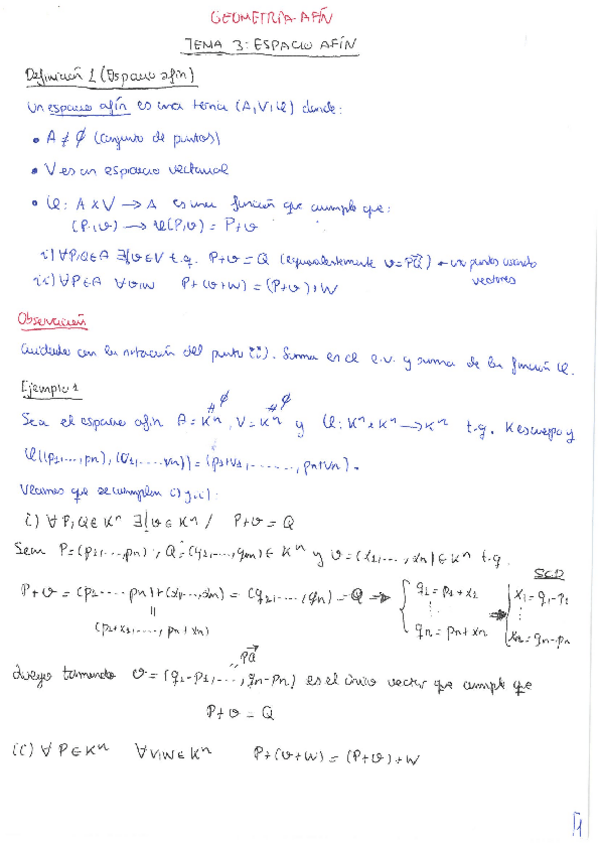 GEOMETRÍA AFÍN
TEMA 3: ESPACIO AFÍN
Definición 1 (Espacio afín)
Un espacio afín es una terna (A,V,φ) donde:
• A ≠ ∅ (conjunto de puntos)
• V es un espacio vectorial
• φ: A x V → A es una función que cumple que:
(P,v) → φ(P,v) = P+v
i) ∀P,Q∈A ∃!v∈V t.q. P+v = Q (equivalentemente v = PQ) ← un puntos usando
vectores
ii) ∀P∈A ∀v,w P+(v+w) = (P+v)+w
Observación
Cuidado con la notación del punto ii). Suma es el e.v. y suma de la función φ.
Ejemplo 1
≠ ∅ ≠ ∅
Sea el espacio afín A = Kⁿ, V = Kⁿ y φ: Kⁿ x Kⁿ → Kⁿ t.q. K es cuerpo y
φ((p1,...,pn),(v1,...,vn)) = (p1+v1,......,pn+vn).
Veamos que se cumplen i) y ii):
i) ∀P,Q∈Kⁿ ∃!v∈Kⁿ / P+v = Q
Sean P=(p1,...,pn), Q=(q1,...,qn)∈Kⁿ y v=(x1,...,xn)∈Kⁿ t.q.
SCD
P+v = (p1...pn)+(x1,...,xn) = (q1,...,qn) = Q ⇒ { q1 = p1+x1 ⋮ qn = pn+xn ⇒ { x1 = q1-p1 ⋮ xn = qn-pn
॥
(p1+x1,...,pn+xn)
PQ
Luego tomando v = (q1-p1,...,qn-pn) es el único vector que cumple que
P+v = Q
ii) ∀P∈Kⁿ ∀v,w∈Kⁿ P+(v+w) = (P+v)+w
1